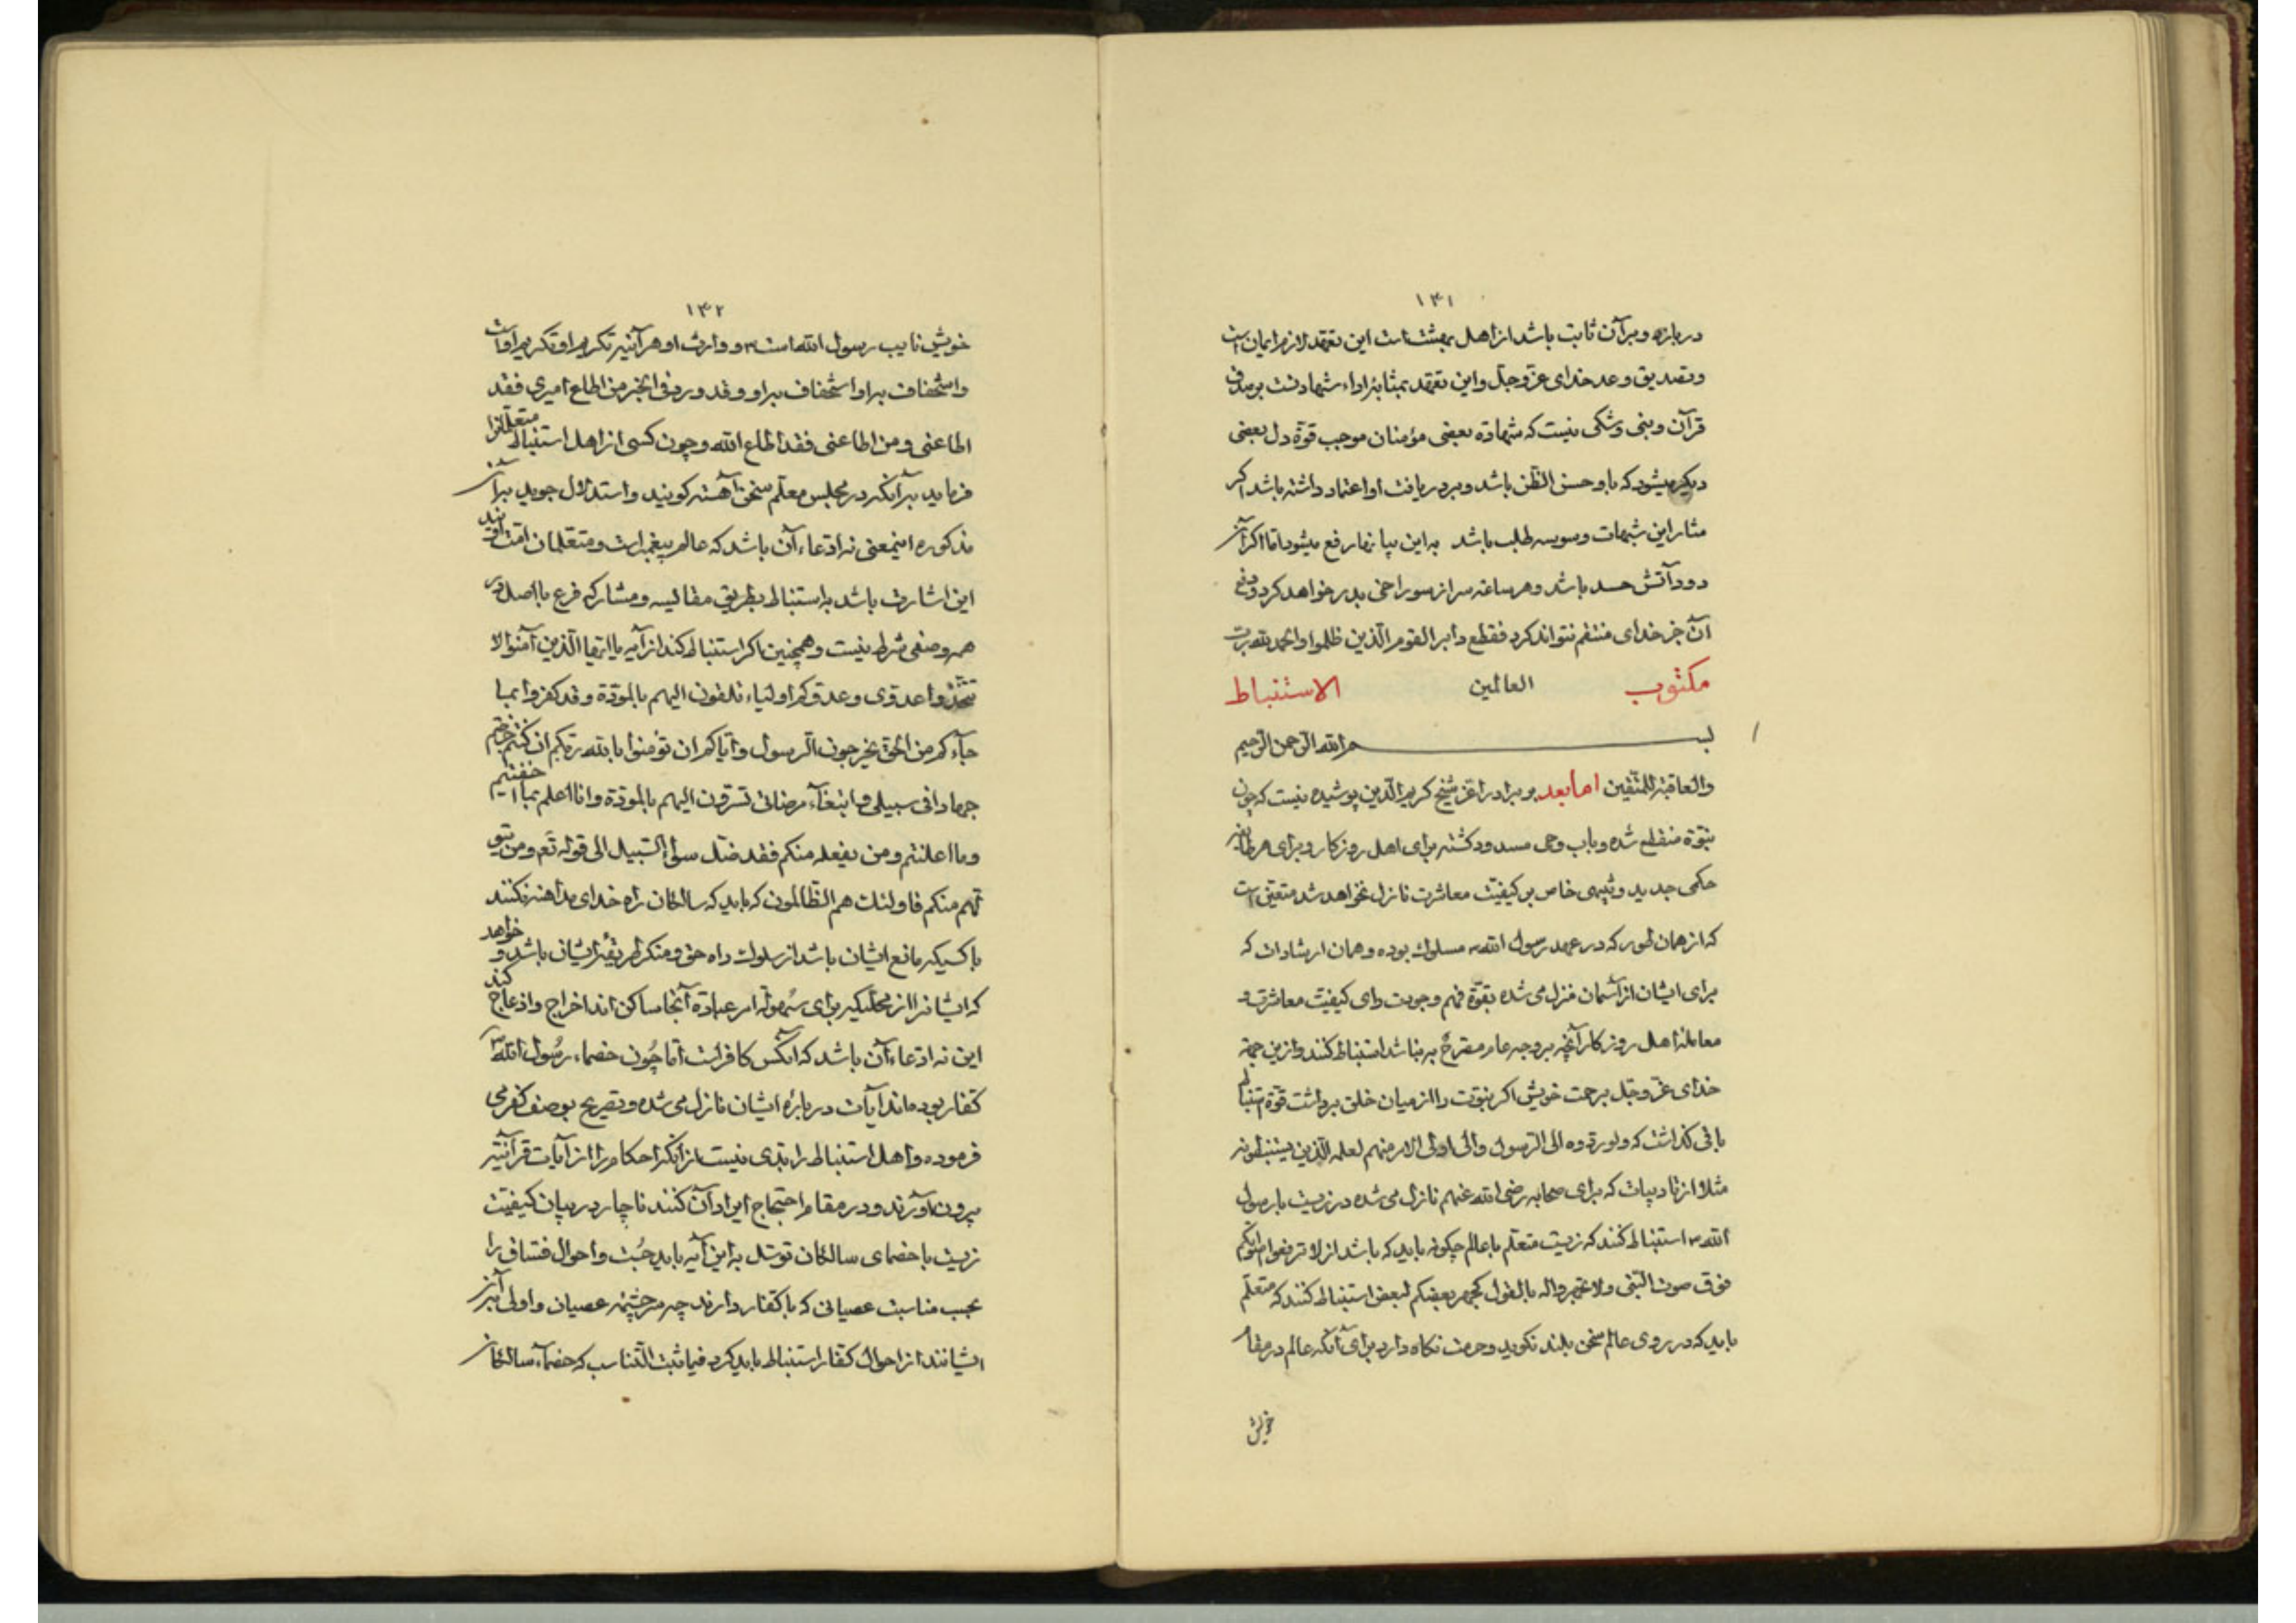 ۱۴۱
درباره و برآن ثابت باشد از اهل بهشتست این تعهد لازم ایمان است
و تصدیق وعد خدای عزوجل و این تعهد بمثابهٔ اداء شهادتست بر صدق
قرآن و نبی و شکی نیست که شهادة بعضی مؤمنان موجب قوة دل بعضی
دیگر میشود که باو حسن الظن باشد و بر دریافت او اعتماد داشته باشد اکر
مثار این شبهات وسوسه طلب باشد به این بیانها رفع میشود اما اکر آن
دود آتش حسد باشد و هر ساعة سر از سوراخی بدر خواهد کرد و دفع
آن جز خدای منتقم نتواند کرد فقطع دابر القوم الذین ظلموا والحمد لله رب
مکتوب العالمین الاستنباط
بسم الله الرحمن الرحیم
والعاقبة للمتقین اما بعد بر برادر اعز شیخ کریم الدین پوشیده نیست که چون
نبوة منقطع شده و باب وحی مسدود کشته برای اهل روزکار و برای هر
حکمی جدید و خاص بر کیفیت معاشرت نازل نخواهد شد متعین است
که از همان طور که در عهد رسول الله ص مسلوک بوده و همان ارشادات که
برای ایشان از آسمان منزل می شده بقوة فهم وجودت رای کیفیت معاشرت و
معاملهٔ اهل روزکار آنچه بر وجه عام مصرح به نباشد استنباط کنند و ازین جهة
خدای عزوجل برحمت خویش اکر نبوت را از میان خلق برداشت قوة استنباط
باقی کذاشت که ولو ردوه الی الرسول والی اولی الامر منهم لعلمه الذین یستنبطونه
مثلا از تادیبات که برای صحابه رضی الله عنهم نازل می شده در زیست با رسول
الله ص استنباط کنند که زیست متعلم با عالم چکونه باید که باشد از لا ترفعوا اصواتکم
فوق صوت النبی ولا تجهروا له بالقول کجهر بعضکم لبعض استنباط کنند که متعلم
باید که در روی عالم سخن بلند نکوید و حرمت نکاه دارد برای آنکه عالم در مقام
خویش
۱۴۲
خویش نایب رسول الله است ص و وارث او هر آینه تکریم او تکریم اوست
و استخفاف بر او استخفاف بر او و قد ورد فی الخبر من اطاع امیری فقد
اطاعنی و من اطاعنی فقد اطاع الله و چون کسی از اهل استنباط متعلمانرا
فرماید برآنکه در مجلس معلم سخن آهسته کویند و استدلال جوید برآن
مذکوره اینمعنی نه ادعاء آن باشد که عالم پیغمبر است و متعلمان امت اویند
این اشارت باشد به استنباط بطریق مقایسه و مشارکه فرع با اصل در
همه وصفی شرط نیست و همچنین اکر استنباط کند از آیه یا ایها الذین آمنوا لا
تتخذوا عدوی وعدوکم اولیاء تلقون الیهم بالمودة وقد کفروا بما
جآءکم من الحق یخرجون الرسول وایاکم ان تؤمنوا بالله ربکم ان کنتم خرجتم
جهادا فی سبیلی وابتغآء مرضاتی تسرون الیهم بالمودة وانا اعلم بما اخفیتم
وما اعلنتم ومن یفعله منکم فقد ضل سواء السبیل الی قوله تع ومن یتو
لهم منکم فاولئک هم الظالمون که باید که سالکان راه خدای مداهنه نکنند
با کسیکه مانع ایشان باشد از سلوک راه حق و منکر طریقهٔ ایشان باشد و خواهد
که ایشانرا از محلیکه برای سهولة امر عبادة آنجا ساکن اند اخراج و ازعاج کند
این نه ادعاء آن باشد که آنکس کافرست اما چون خصماء رسول الله ص
کفار بوده اند آیات دربارهٔ ایشان نازل می شده و تصریح بوصف کفر می
فرموده و اهل استنباط را بدی نیست از آنکه احکام را از آیات قرآنیه
بیرون آورند و در مقام احتجاج ایراد آن کنند ناچار در بیان کیفیت
زیست با خصمای سالکان توسل به این آیه باید جست و احوال فساق را
بحسب مناسبت عصیانی که با کفار دارند چه سرچشمه عصیان و اولی آن
ایشانند از احوال کفار استنباط باید کرد فیما ثبت التناسب که خصمآء سالکان